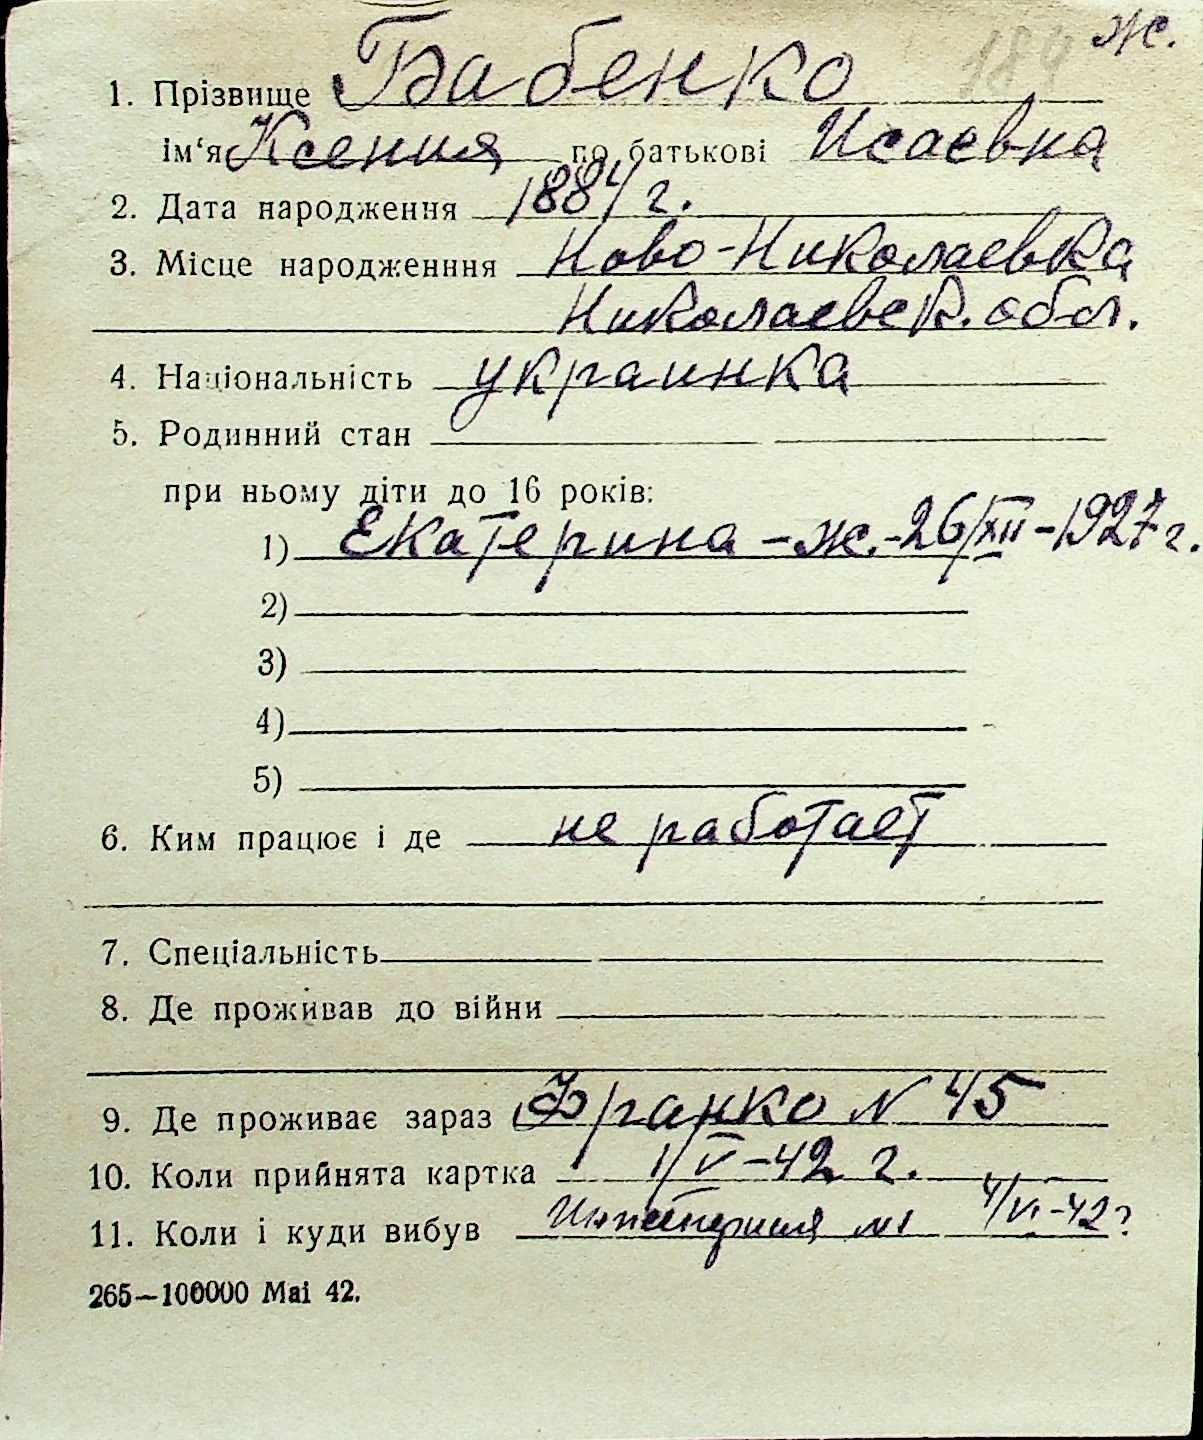 ж.
184
1. Прізвище Бабенко
ім‘я Ксения по батькові Исаевна
2. Дата народження 1884 г.
3. Місце народженння Ново-Николаевка
Николаевск. обл.
4. Національність украинка
5. Родинний стан
при ньому діти до 16 років:
1) Екатерина – ж. - 26/XII – 1927 г.
2)
3)
4)
5)
6. Ким працює і де не работает
7. Спеціальність
8. Де проживав до війни
9. Де проживає зараз Франко N 45
10. Коли прийнята картка 1/V – 42 г.
11. Коли і куди вибув 4/VI - 42 г
265—100000 Mai 42.